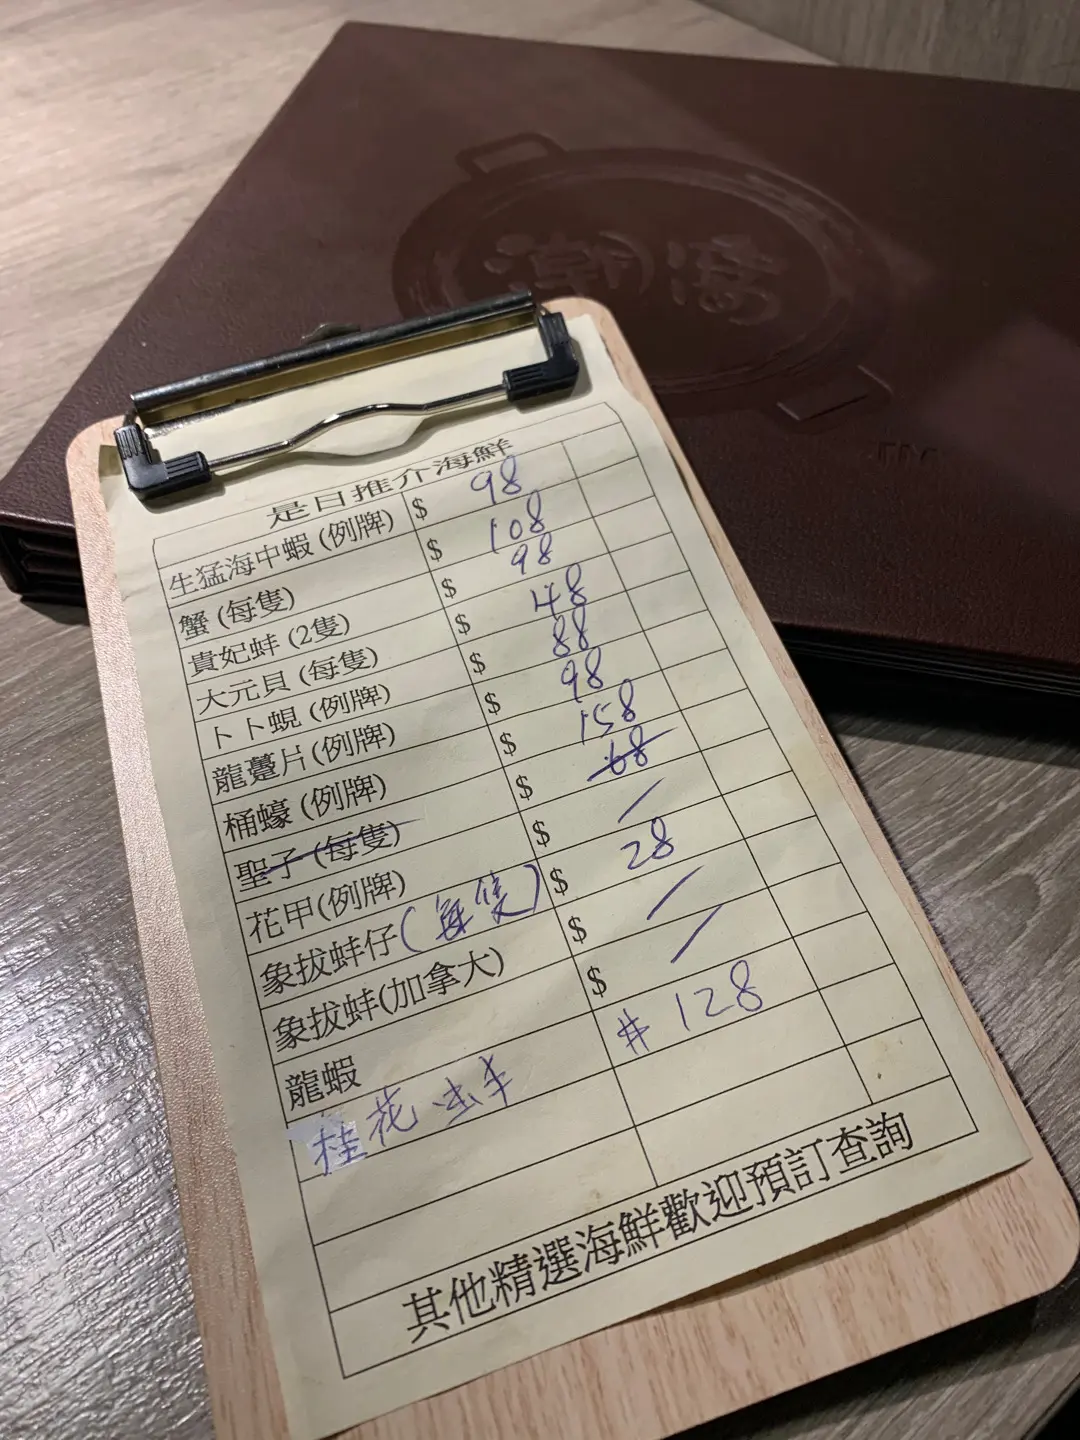 潮窩
TM
是日推介海鮮
生猛海中蝦 (例牌) $ 98
蟹 (每隻) $ 108
貴妃蚌 (2隻) $ 98
大元貝 (每隻) $ 48
卜卜蜆 (例牌) $ 88
龍躉片 (例牌) $ 98
桶蠔 (例牌) $ 158
聖子 (每隻) $ 68
花甲(例牌) $ /
象拔蚌仔(每隻) $ 28
象拔蚌(加拿大) $ /
龍蝦 $ /
桂花蚌 $ 128
其他精選海鮮歡迎預訂查詢